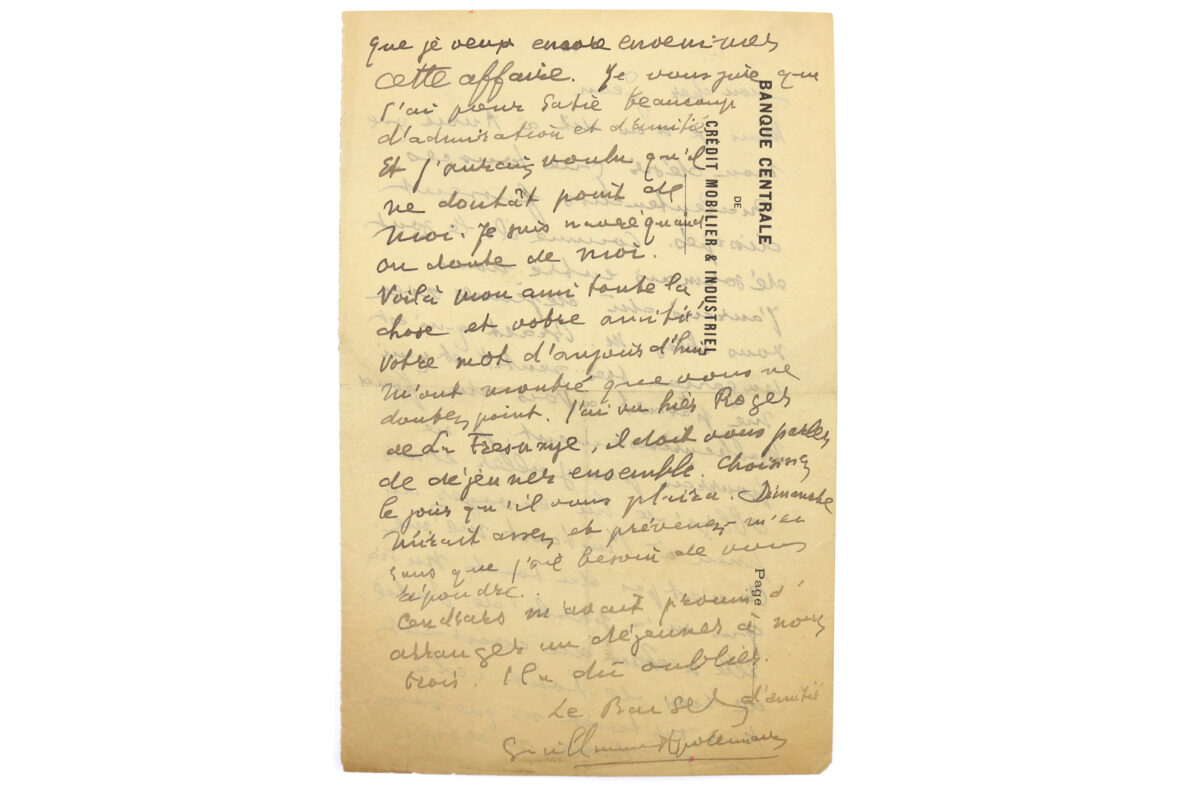 que je veux encore envenimer
cette affaire. Je vous jure que
j'ai pour Satie beaucoup
d'admiration et d'amitié
Et j'aurais voulu qu'il
ne doutât point de
moi. Je suis navré quand
on doute de moi.
Voilà mon ami toute la
chose et votre amitié
votre mot d'aujourd'hui
m'ont montré que vous ne
doutez point. J'ai vu hier Roger
de La Fresnaye, il doit vous parler
de déjeuner ensemble. Choisissez
le jour qu'il vous plaira. Dimanche
m'irait assez et prévenez-m'en
sans que j'aie besoin de vous
répondre.
Cendrars m'avait promis d'
arranger un déjeuner à nous
trois. Il a dû oublier.
Le Baiser d'amitié
Guillaume Apollinaire
BANQUE CENTRALE
DE
CRÉDIT MOBILIER & INDUSTRIEL
Page